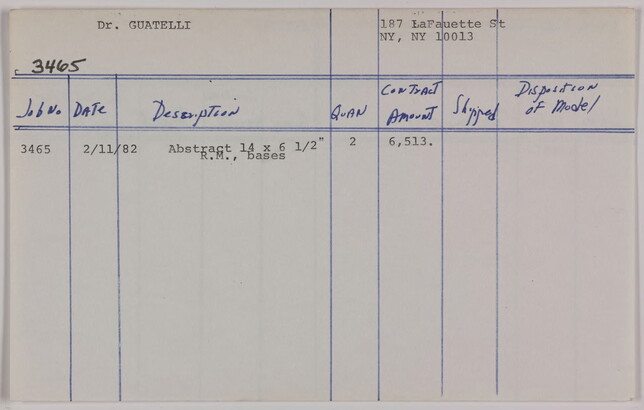 Dr. GUATELLI
187 LaFauette St
NY, NY 10013
3465
Job No DATE Description QUAN Contract Amount Shipped Disposition of Model
3465 2/11/82 Abstract 14 x 6 1/2" 2 6,513.
R.M., bases